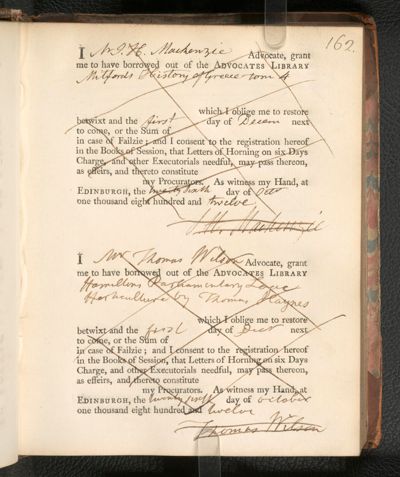 162.
I Mr J. H. Mackenzie Advocate, grant
me to have borrowed out of the ADVOCATES LIBRARY
Mitfords History of Greece vom 4
which I oblige me to restore
betwixt and the first day of Decem next
to come, or the Sum of
in case of Failzie; and I consent to the registration hereof
in the Books of Session, that Letters of Horning on six Days
Charge, and other Executorials needful, may pass thereon,
as effeirs, and thereto constitute
my Procurators. As witness my Hand, at
EDINBURGH, the twenty sixth day of
one thousand eight hundred and twelve
J. H. Mackenzie
I Mr Thomas Wilson Advocate, grant
me to have borrowed out of the ADVOCATES LIBRARY
Hamiltons Parliamentary Logic
Horticulture by Thomas Haynes
which I oblige me to restore
betwixt and the first day of Decr next
to come, or the Sum of
in case of Failzie; and I consent to the registration hereof
in the Books of Session, that Letters of Horning on six Days
Charge, and other Executorials needful, may pass thereon,
as effeirs, and thereto constitute
my Procurators. As witness my Hand, at
EDINBURGH, the twenty sixth day of october
one thousand eight hundred and twelve
Thomas Wilson